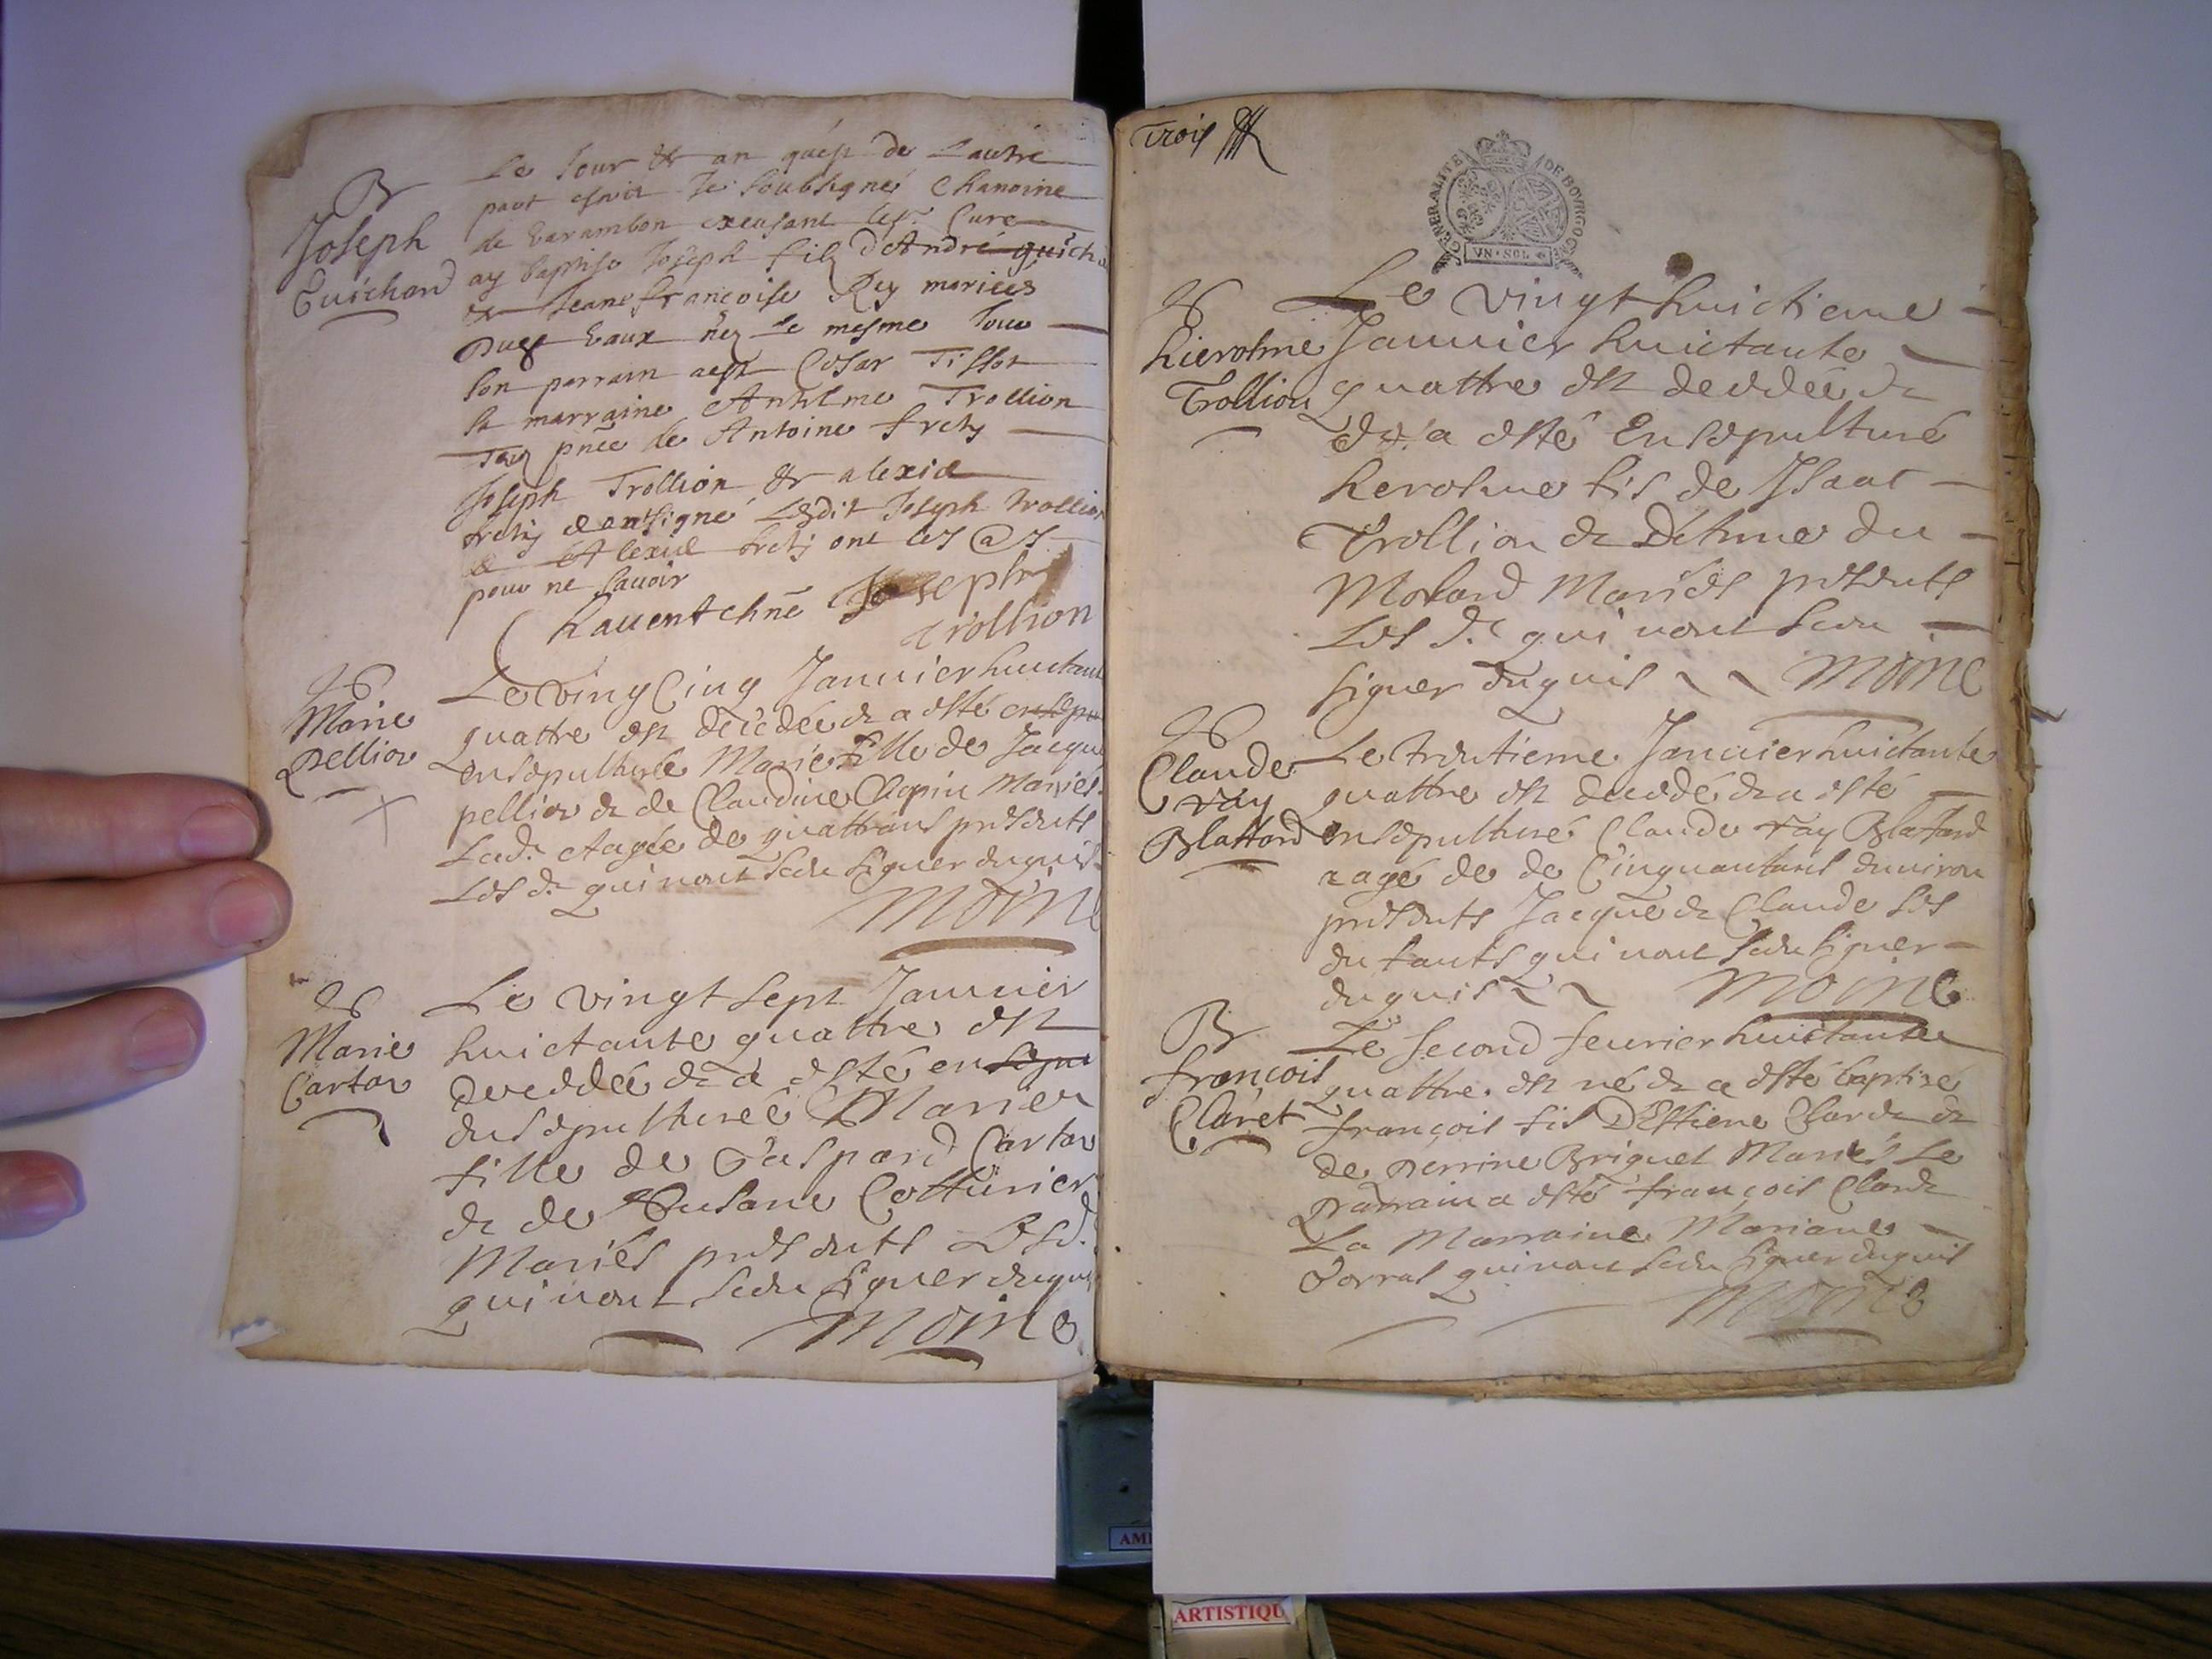 B
Joseph
Guichard
Le Jour & an qués de Lautre
part escrit Je soubsigné Chanoine
de Varambon excusant le sr Curé
ay baptisé Joseph filz d'André guich
& Jeane françoise Rey mariées
nez le mesme Jour
son parrain aest Cesar Tissot
sa marraine Anthelme Trollion
pnce de Antoine fretz
Joseph Trollion & alexid
Ledit Joseph trollion
pour ne savoir
Joseph
trollion
Marie
pellior
Le Ving Cinq Januier huictant
quattre est décédée & a esté
ensepulturée Marie fille de Jacque
pellior & de Claudine Mariés
Lad. Aagée de quattrans presents
Les d. qui nont sceu signer enquis
Moine
Marie
Cartor
Le vingt sept Januier
huictante quattre est
deceddée & a esté
ensepulturée Marie
fille de Gaspard Cartor
& de Susane Cotturier
Mariés presents Lesd.
qui nont sceu signer enquis
Moine
Trois
GENERALITE DE BOVRGOGNE
VN·SOL
hierosme
Trollion
Le vingt huictieme
Januier huictante
quattre est deceddée &
a esté Ensepulturé
herosme fis de Isaac
Trollion & du
Molard Mariés presents
Les d. qui nont sceu
signer enquis Moine
Claude
ray
Blattard
Le trentieme Januier huictante
quattre est deceddé & a esté
ensepulturé Claude ray Blattard
aagé de de Cinquantans enuiron
presents Jacque & Claude ses
enfants qui nont sceu signer
enquis Moine
B
françois
Claret
Le second feurier huictante
quattre est né & a esté baptisé
françois fis D'Estiene Claret &
de perrine Briguet Mariés Le
parrain a esté françois Claret
La Marraine Mariane
qui nont sceu signer enquis
Moine
ARTISTIQU